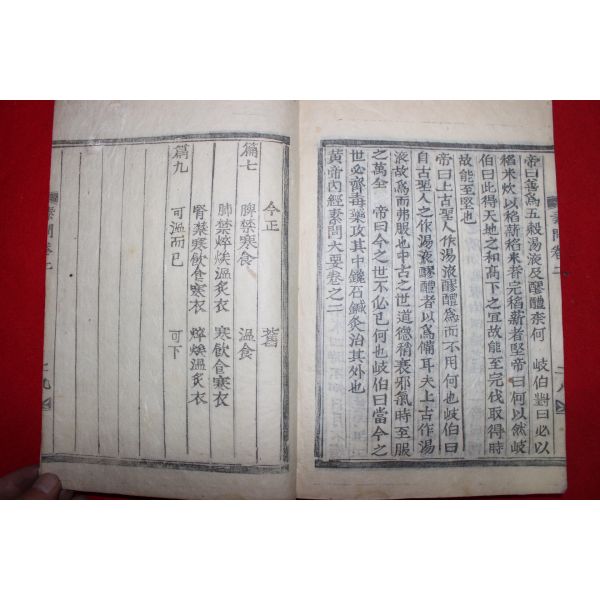 素問卷二
帝曰善爲五穀湯液及醪醴柰何　岐伯對曰必以
稻米炊以稻薪稻米者完稻薪者堅帝曰何以然岐
伯曰此得天地之和高下之宜故能至完伐取得時
故能至堅也
帝曰上古聖人作湯液醪醴爲而不用何也岐伯曰
自古聖人之作湯液醪醴者以爲備耳夫上古作湯
液故爲而弗服也中古之世道德稍衰邪氣時至服
之萬全　帝曰今之世不必已何也岐伯曰當今之
世必齊毒藥攻其中鑱石鍼灸治其外也
黃帝內經素問大要卷之二
今正　舊
篇七　脾禁寒食　溫食
肺禁焠㶼溫炙衣　寒飮食寒衣
腎禁寒飮食寒衣　焠㶼溫炙衣
篇九　可溫而已　可下